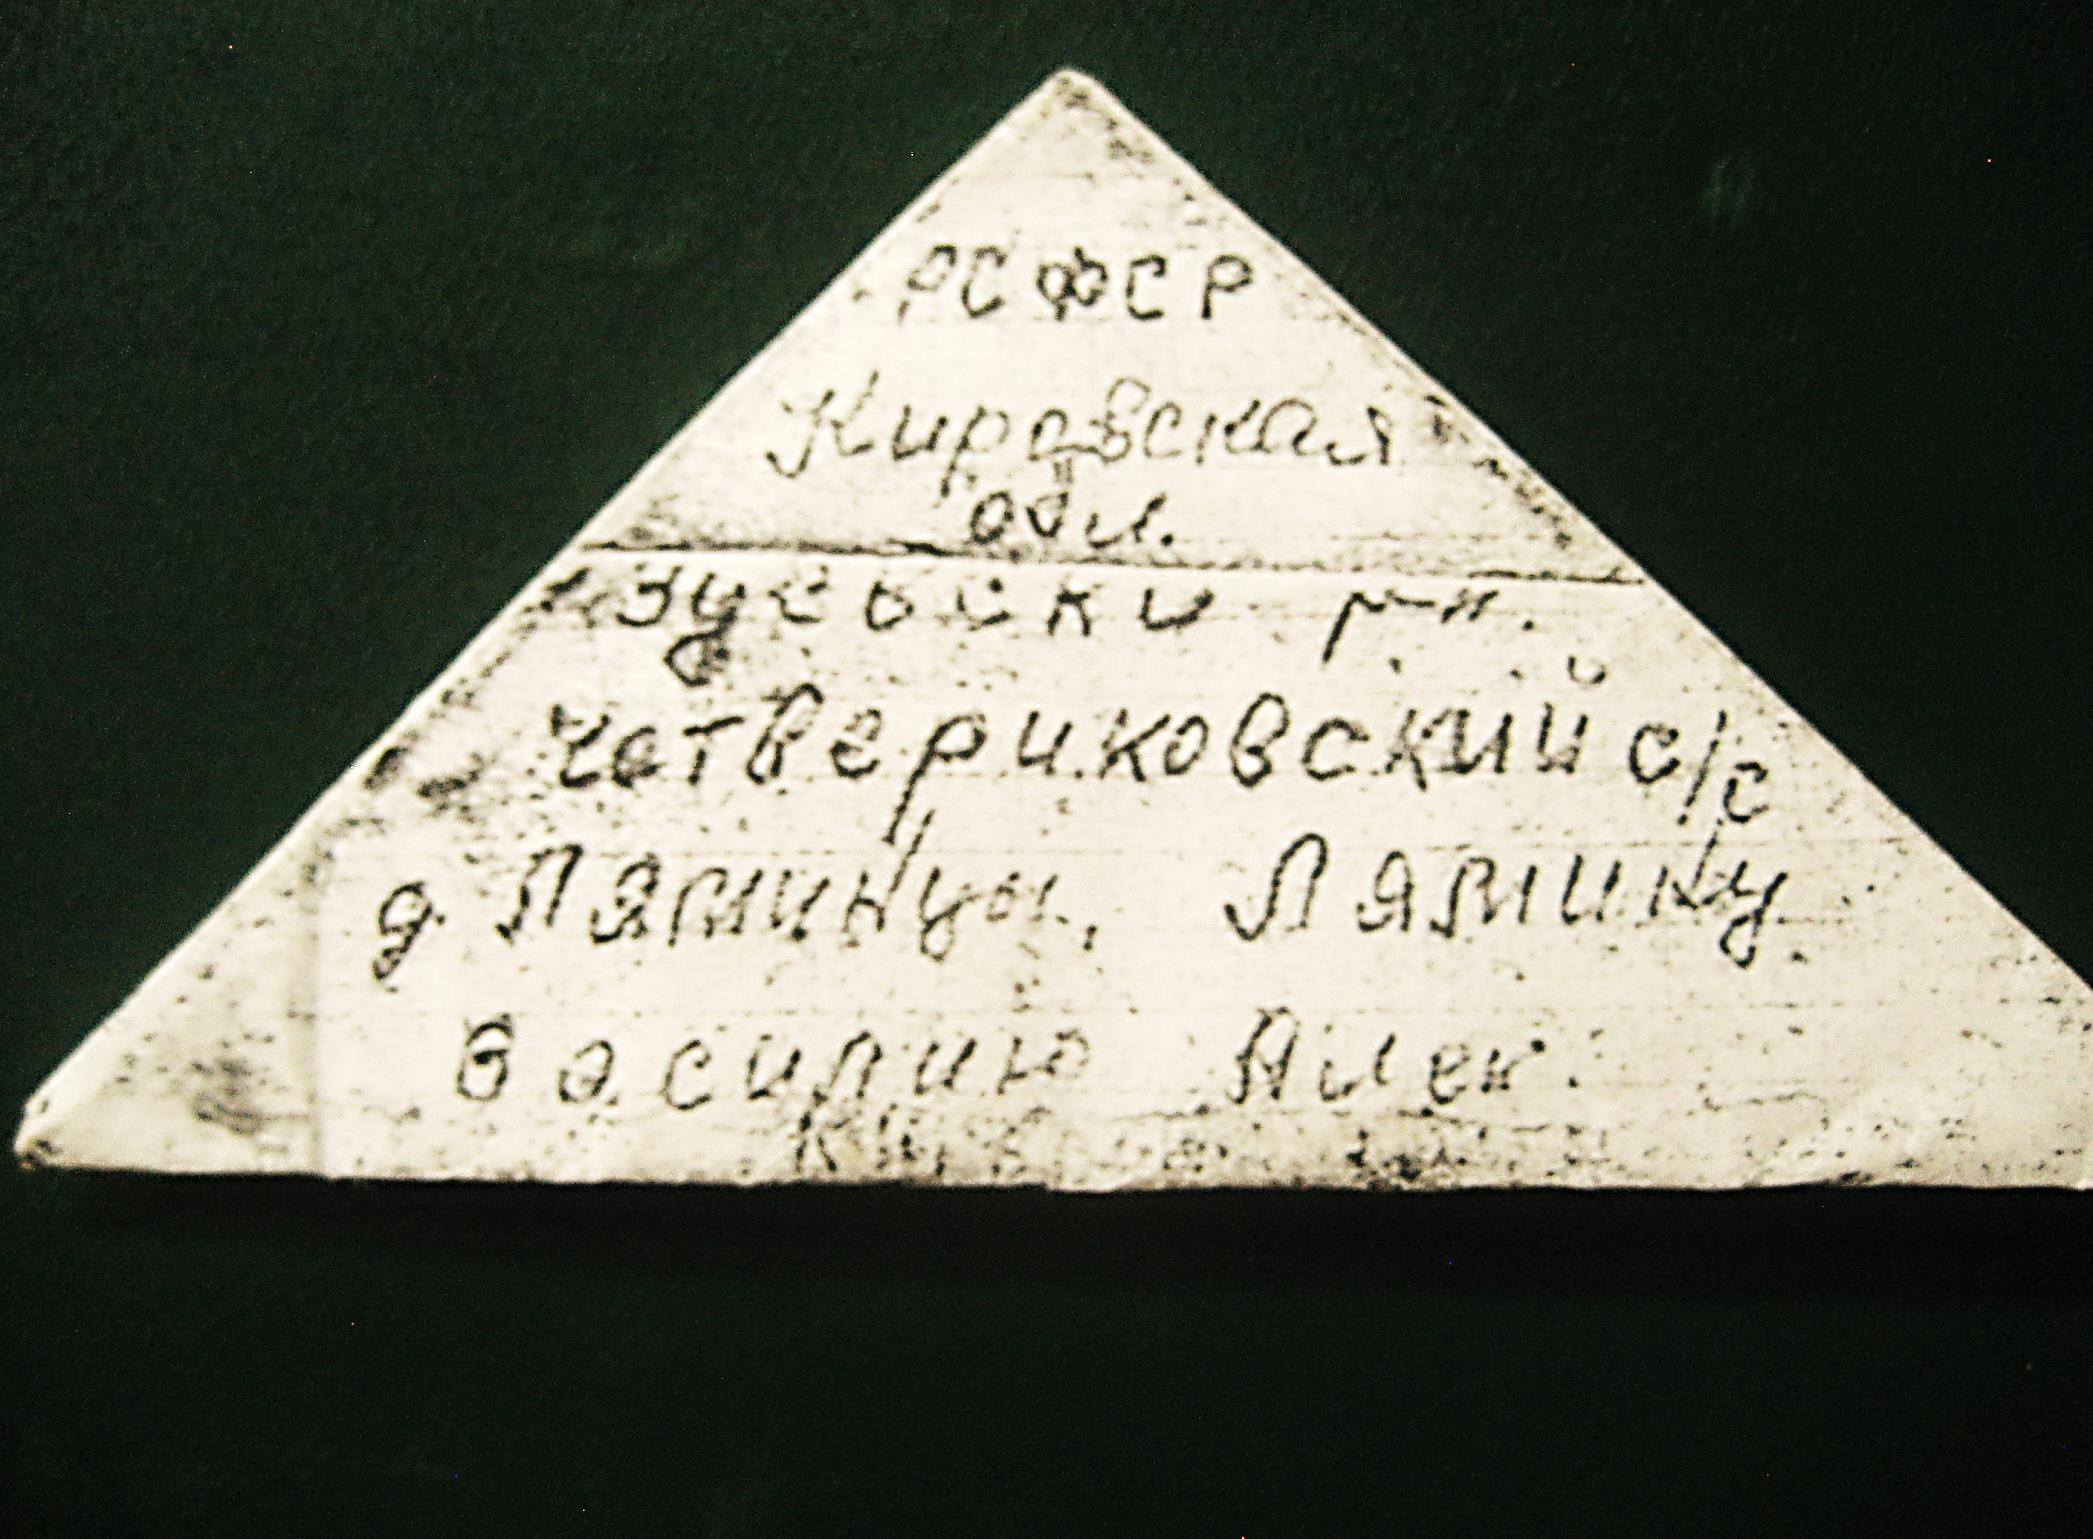 РСФСР
Кировская
обл.
Зуевски р-н.
Четвериковский с/с
д. Лямины, Лямину
Василию Алек.